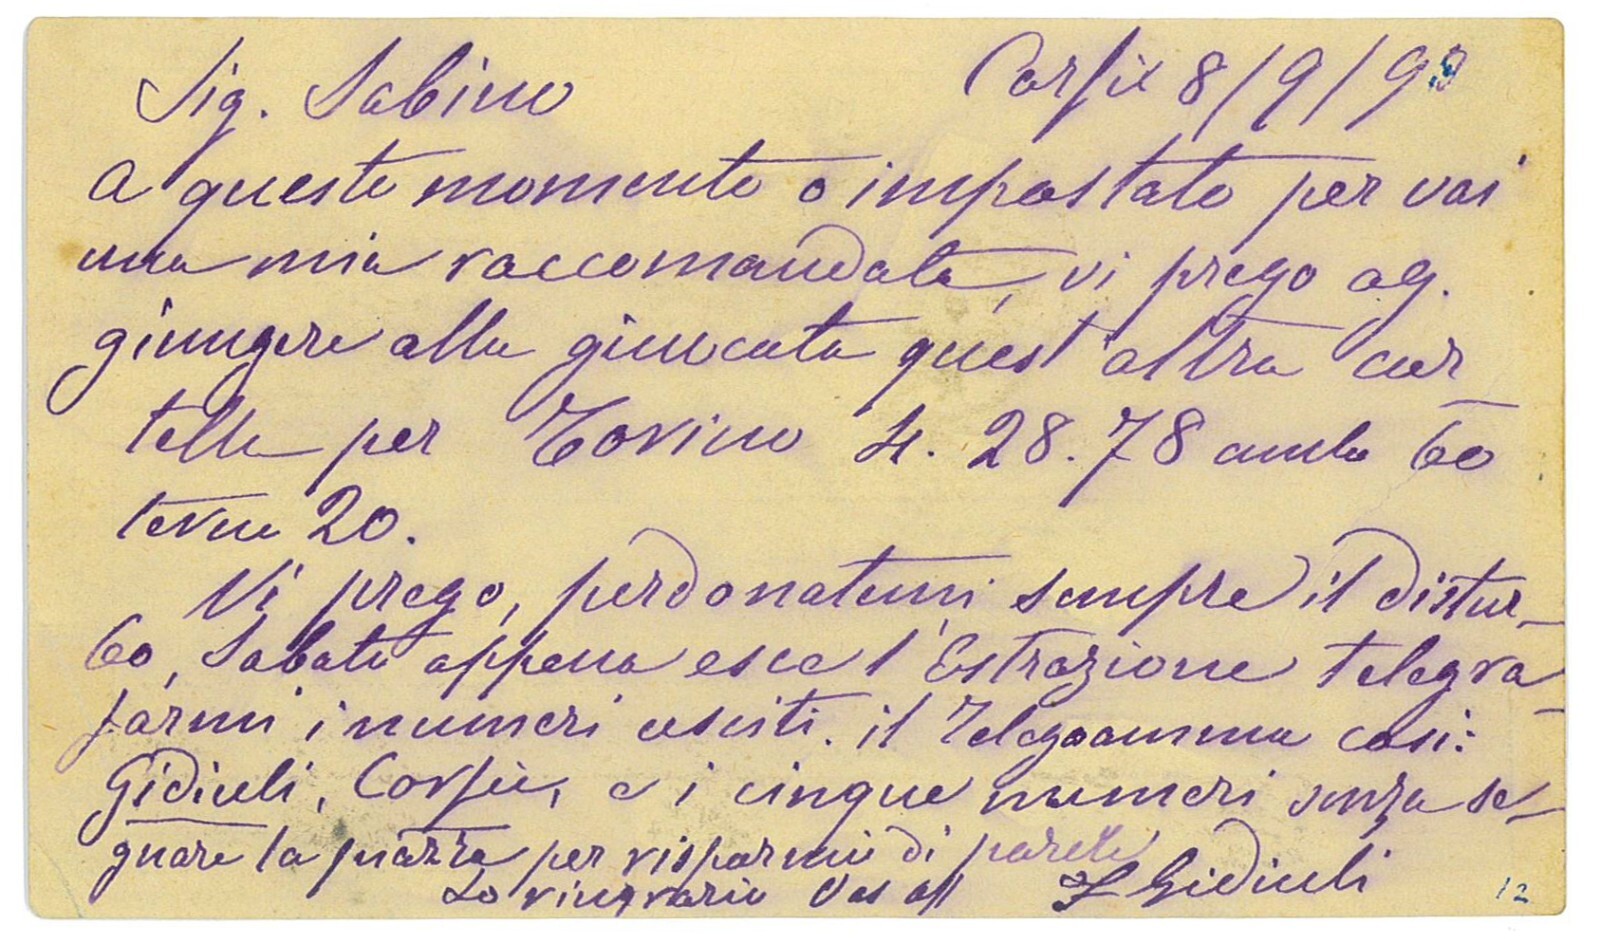 Corfù 8/9/93
Sig. Sabino
A questo momento ò impostato per voi
una mia raccomandata, vi prego ag.
giungere alla giuocata quest'altra car
tella per Torino 4. 28. 78 ambo 60
terno 20.
Vi prego, perdonatemi sempre il distur-
bo, Sabato appena esce l'Estrazione telegra
farmi i numeri usciti. il Telegramma così:
Gidiuli, Corfù, e i cinque numeri senza se-
gnare la piazza per risparmio di parole
Lo ringrazio Vos aff
Gidiuli
12